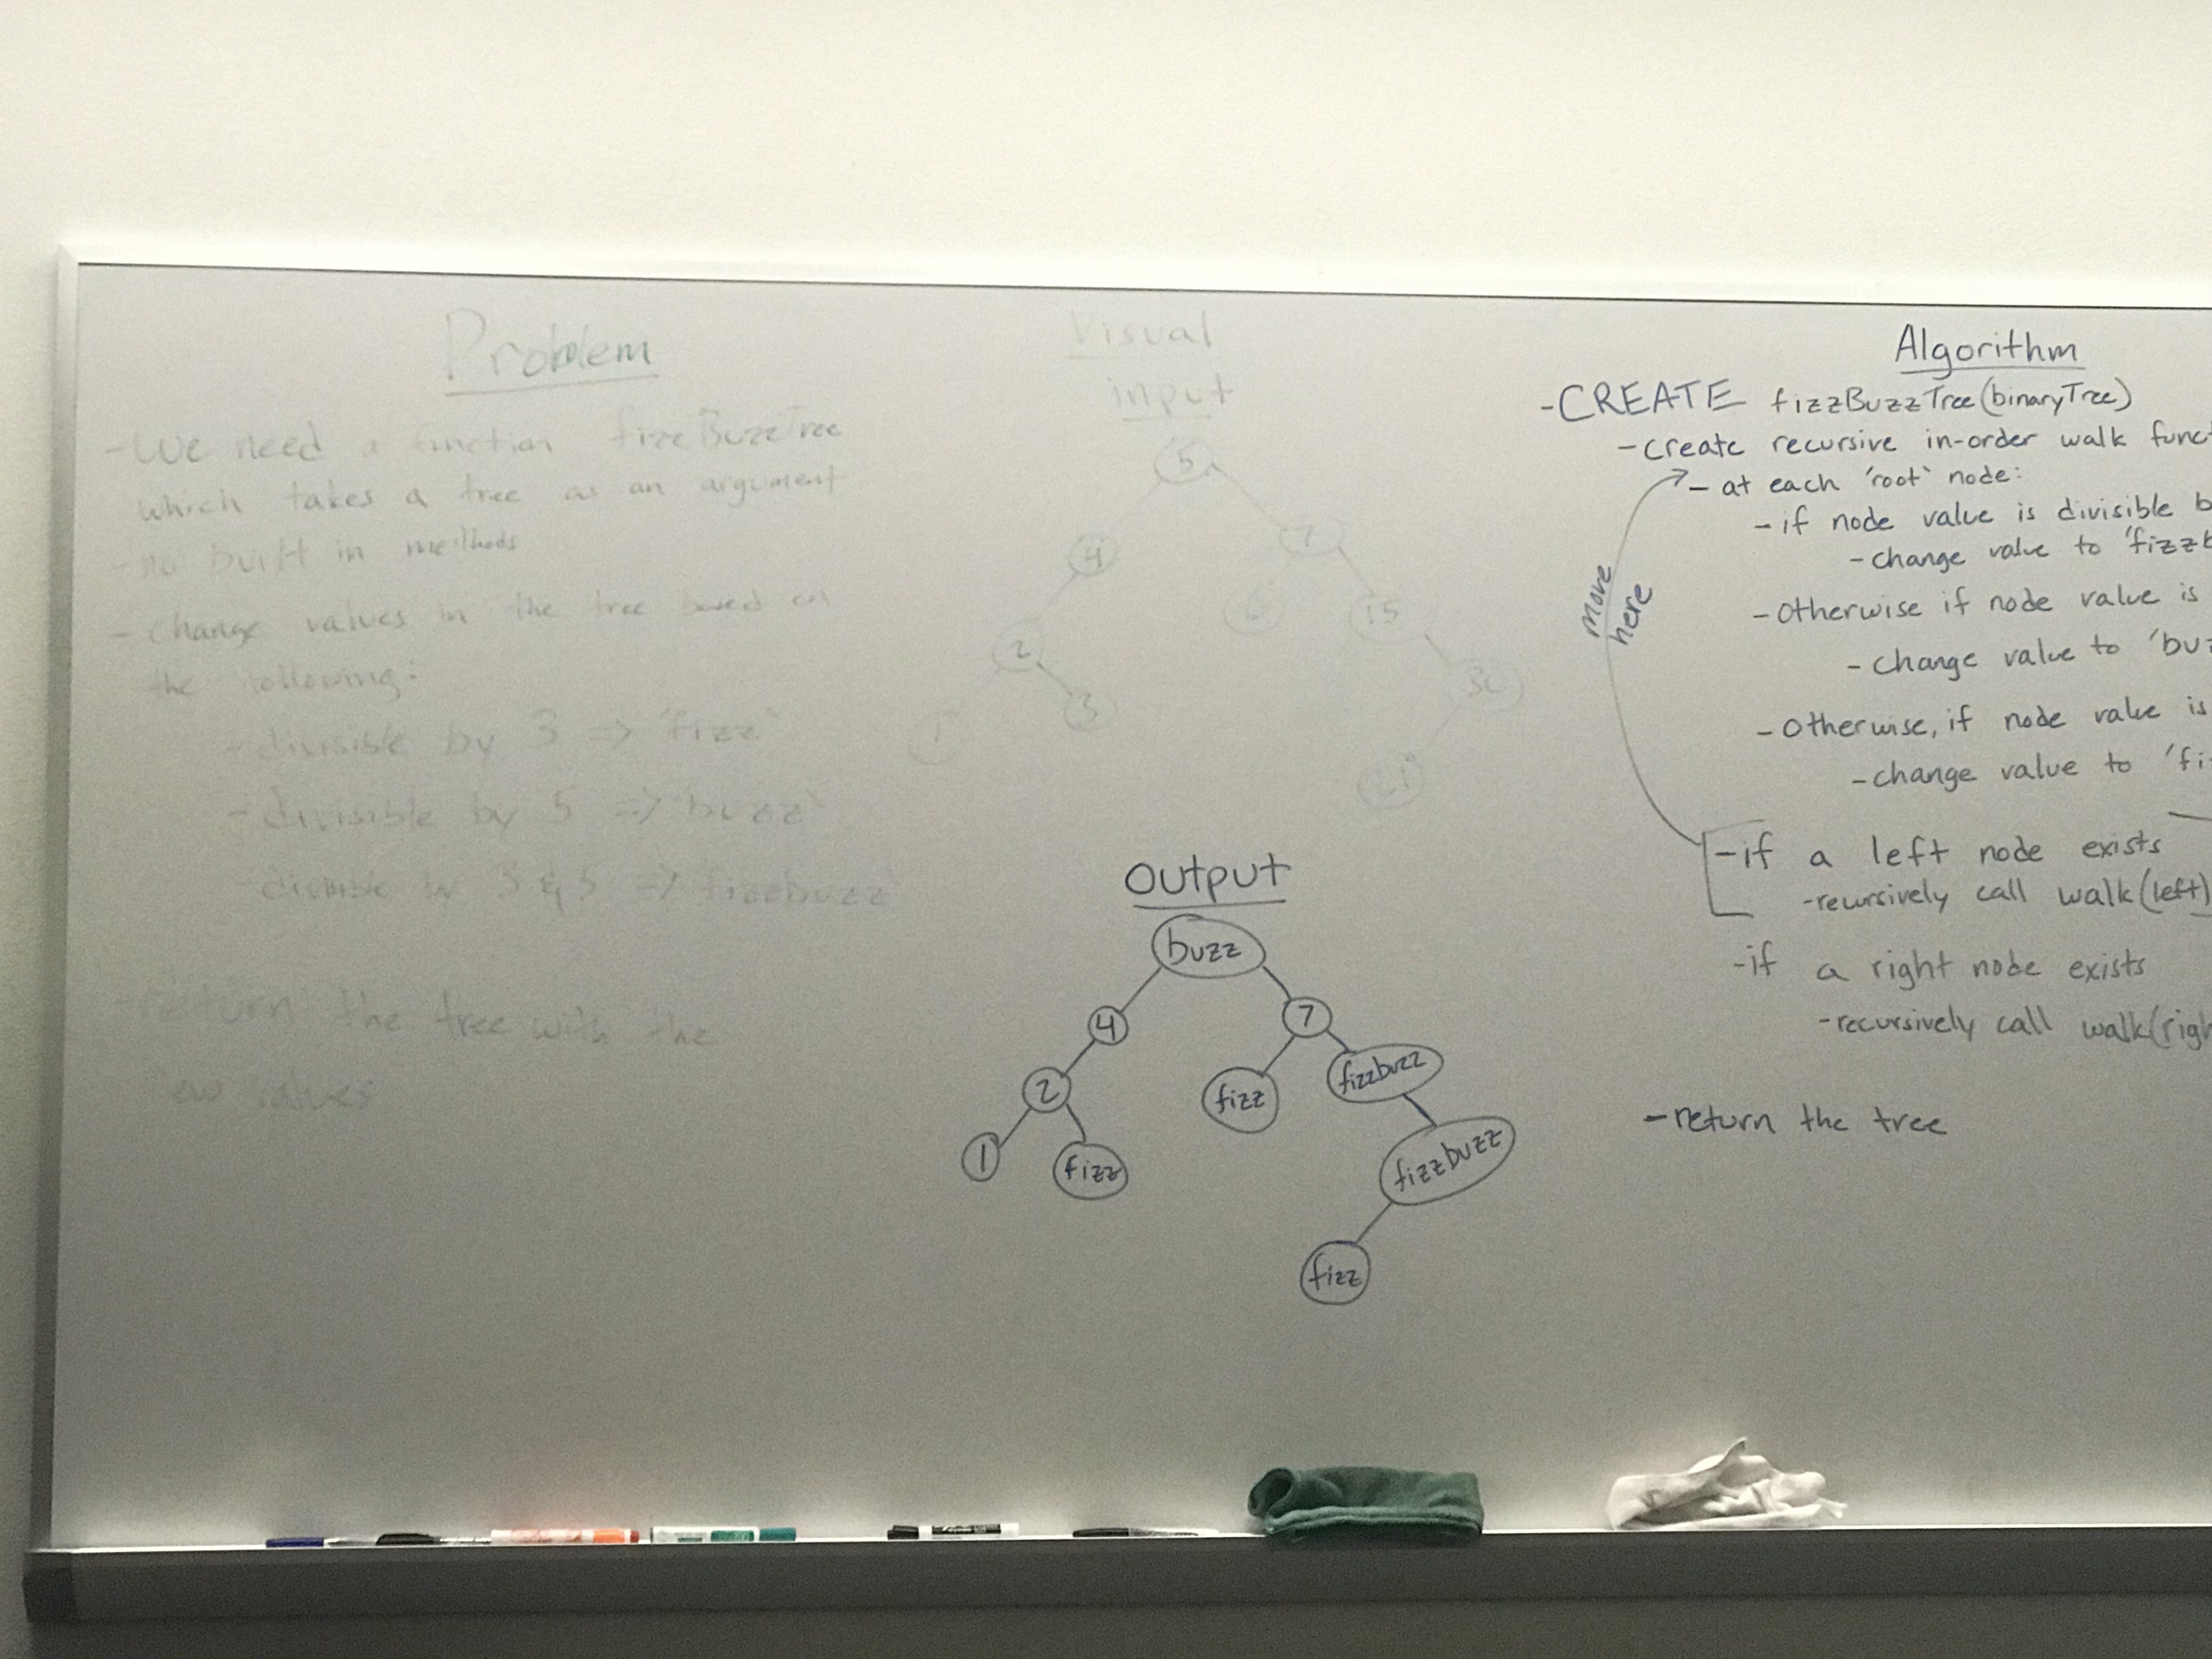 Problem
- We need a function fizzBuzzTree
which takes a tree as an argument
- no built in methods
- change values in the tree based on
the following:
- divisible by 3 => 'fizz'
- divisible by 5 => 'buzz'
- by 3 & 5 => 'fizzbuzz'
- return the tree with the
values
Visual
input
5
4
7
2
6
15
1
3
30
21
output
buzz
4
7
2
fizz
fizzbuzz
1
fizz
fizzbuzz
fizz
Algorithm
- CREATE fizzBuzzTree(binaryTree)
- create recursive in-order walk funct
- at each 'root' node:
- if node value is divisible b
- change value to 'fizzb
- Otherwise if node value is
- change value to 'buz
- Otherwise, if node value is
- change value to 'fi
more
here
- if a left node exists
- recursively call walk(left)
- if a right node exists
- recursively call walk(righ
- return the tree